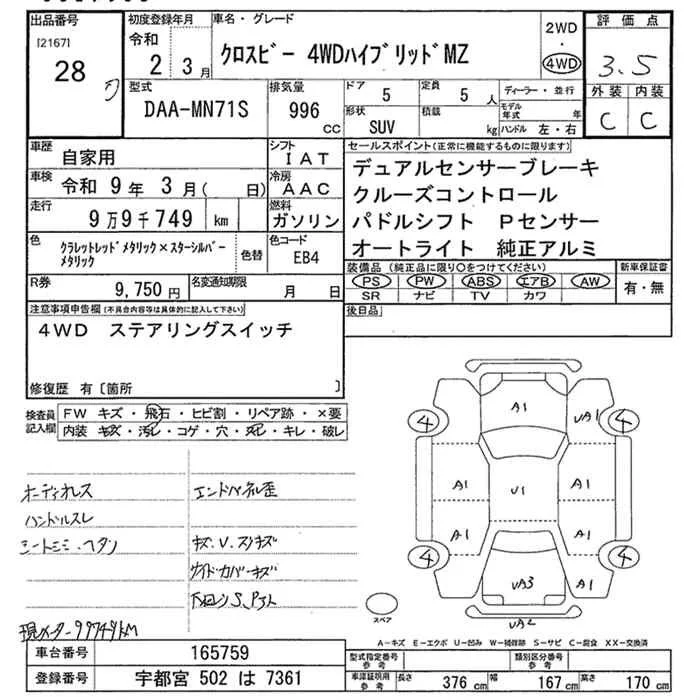 出品番号 初度登録年月 車名・グレード 2WD・4WD 評価点
[2167] 28
令和 2 3月
クロスビー 4WDハイブリッドMZ
3.5
外装 内装
C C
型式 DAA-MN71S
排気量 996 CC
ドア 5 定員 5 人
形状 SUV 積載 kg
ディーラー・並行
モデル年式 年
ハンドル 左・右
車歴 自家用
シフト IAT
車検 令和 9年 3月( 日)
冷房 AAC
走行 9万9千749 km
燃料 ガソリン
色 クラレットレッドメタリック×スターシルバーメタリック 色替
色コード EB4
R券 9,750円
名変通知期限 月 日
セールスポイント(正常に機能するものに限ります)
デュアルセンサーブレーキ
クルーズコントロール
パドルシフト Pセンサー
オートライト 純正アルミ
装備品(純正品に限り○をつけてください) 新車保証書
PS PW ABS エアB AW 有・無
SR ナビ TV カワ
後日品
注意事項申告欄(不具合内容等は具体的に記入して下さい)
4WD ステアリングスイッチ
修復歴 有〔箇所 〕
検査員記入欄
FW キズ・飛石・ヒビ割・リペア跡・×要
内装 キズ・汚レ・コゲ・穴・スレ・キレ・破レ
オーディオレス
ハンドルスレ
シートシミ・ヘタリ
現メーター99749KM
エンドパネル歪
キズ.V.スリキズ
サイドカバーキズ
下回りS
A1
UA1
4 4
A1 U1 A1
A1 A1
4 4
UA3 A1
UA2
スペア
A-キズ E-エクボ U-凹み W-補修跡 S-サビ C-腐食 XX-交換済
車台番号 165759
型式指定番号 参考
類別区分番号 参考
登録番号 宇都宮 502 は 7361
車庫証明用 参考 長さ 376 cm 幅 167 cm 高さ 170 cm